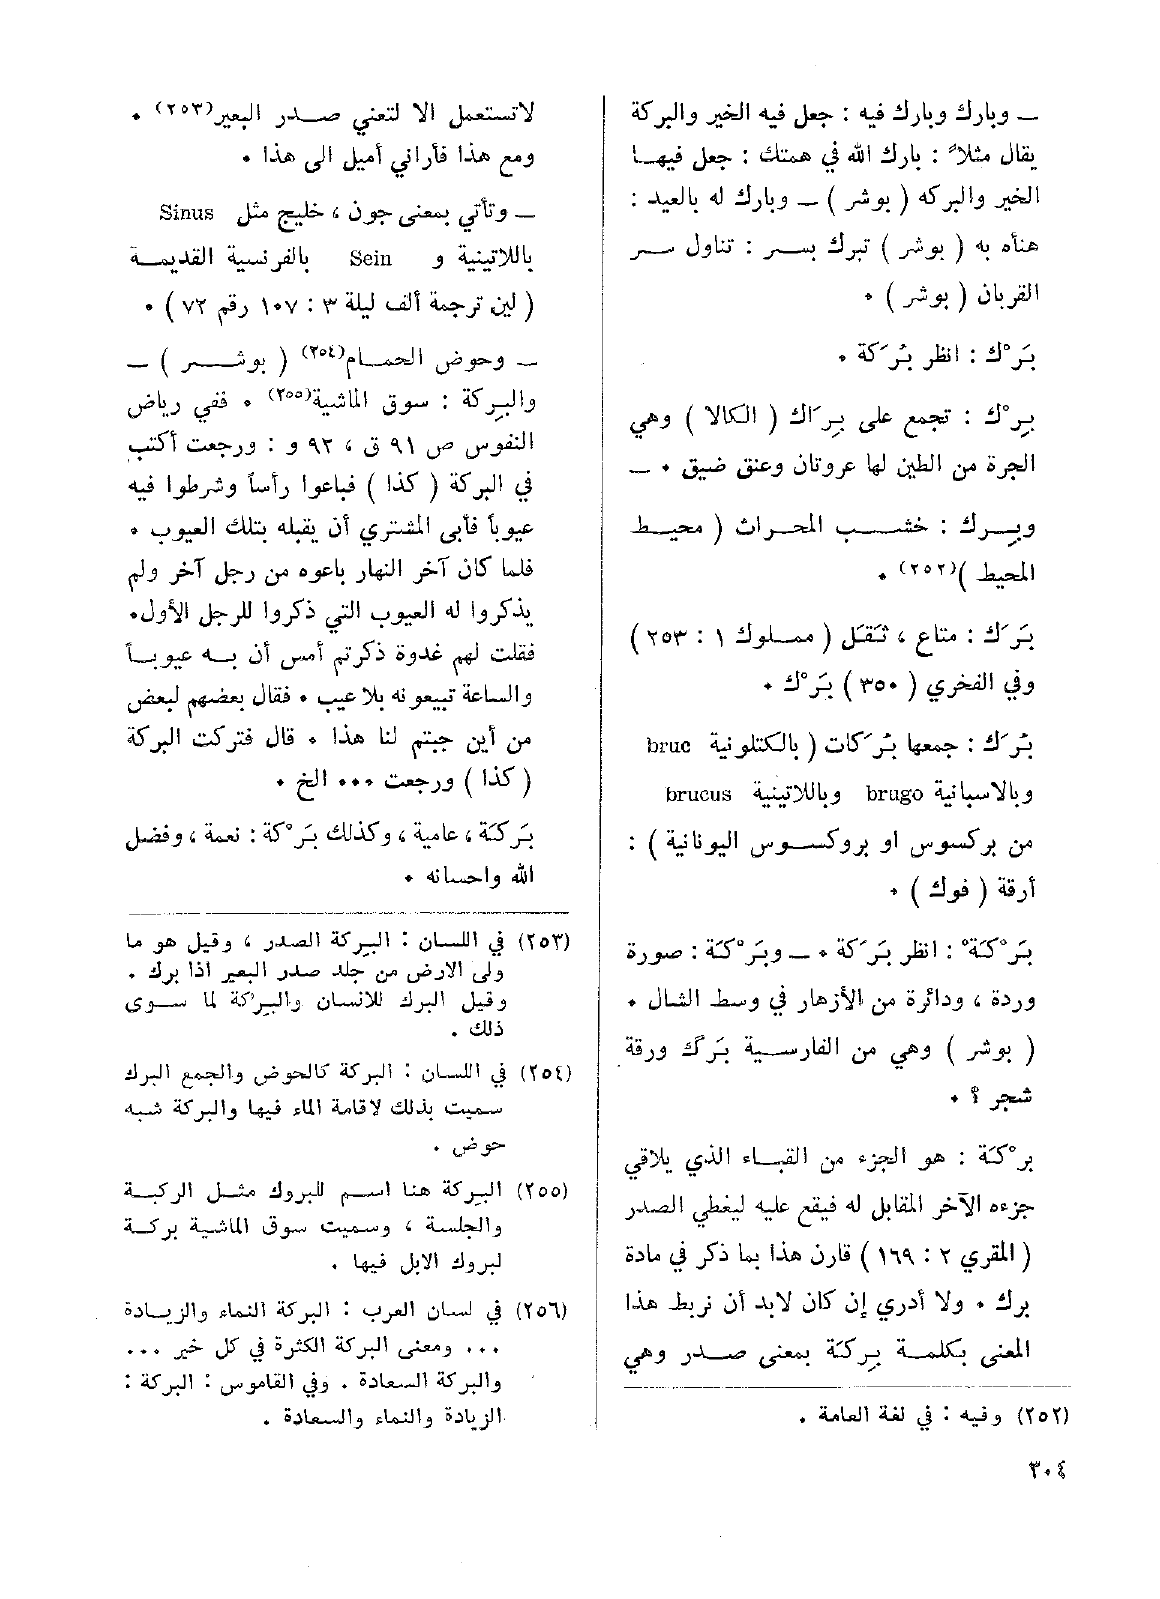 ــ وبارك وبارك فيه : جعل فيه الخير والبركة
يقال مثلاً : بارك الله في همتك : جعل فيها
الخير والبركه ( بوشر ) ــ وبارك له بالعيد :
هنأه به ( بوشر ) تبرك بسر : تناول سر
القربان ( بوشر ) ٠
بَرْك : انظر بَرَكة ٠
بِرْك : تجمع على بِرَاك ( الكالا ) وهي
الجرة من الطين لها عروتان وعنق ضيق ٠ ــ
وبِرك : خشب المحراث ( محيط
المحيط )(٢٥٢) ٠
بَرَك : متاع ، ثَقَل ( مملوك ١ : ٢٥٣ )
وفي الفخري ( ٣٥٠ ) بَرْك ٠
بُرَك : جمعها بُرَكات ( بالكتلونية bruc
وبالاسبانية brugo وباللاتينية brucus
من بركسوس او بروكسوس اليونانية ) :
أرقة ( فوك ) ٠
بَرْكَة : انظر بَرَكة ٠ ــ وبَرْكَة : صورة
وردة ، ودائرة من الأزهار في وسط الشال ٠
( بوشر ) وهي من الفارسية بَرگ ورقة
شجر ؟ ٠
برْكَة : هو الجزء من القباء الذي يلاقي
جزءه الآخر المقابل له فيقع عليه ليغطي الصدر
( المقري ٢ : ١٦٩ ) قارن هذا بما ذكر في مادة
برك ٠ ولا أدري إن كان لابد أن نربط هذا
المعنى بكلمة بِركَة بمعنى صدر وهي
(٢٥٢) وفيه : في لغة العامة .
لاتستعمل الا لتعني صدر البعير(٢٥٣) ٠
ومع هذا فأراني أميل الى هذا ٠
ــ وتأتي بمعنى جون ، خليج مثل Sinus
باللاتينية و Sein بالفرنسية القديمة
( لين ترجمة ألف ليلة ٣ : ١٠٧ رقم ٧٢ ) ٠
ــ وحوض الحمام(٢٥٤) ( بوشر ) ــ
والبِركة : سوق الماشية(٢٥٥) ٠ ففي رياض
النفوس ص ٩١ ق ، ٩٢ و : ورجعت أكتب
في البركة ( كذا ) فباعوا رأساً وشرطوا فيه
عيوباً فأبى المشتري أن يقبله بتلك العيوب ٠
فلما كان آخر النهار باعوه من رجل آخر ولم
يذكروا له العيوب التي ذكروا للرجل الأول٠
فقلت لهم غدوة ذكرتم أمس أن به عيوباً
والساعة تبيعونه بلا عيب ٠ فقال بعضهم لبعض
من أين جبتم لنا هذا ٠ قال فتركت البركة
( كذا ) ورجعت ٠٠٠ الخ ٠
بَركَة ، عامية ، وكذلك بَرْكة : نعمة ، وفضل
الله واحسانه ٠
(٢٥٣) في اللسان : البِركة الصدر ، وقيل هو ما
ولى الارض من جلد صدر البعير اذا برك .
وقيل البرك للانسان والبِركة لما سوى
ذلك .
(٢٥٤) في اللسان : البركة كالحوض والجمع البرك
سميت بذلك لاقامة الماء فيها والبركة شبه
حوض .
(٢٥٥) البِركة هنا اسم للبروك مثل الركبة
والجلسة ، وسميت سوق الماشية بركة
لبروك الابل فيها .
(٢٥٦) في لسان العرب : البركة النماء والزيادة
... ومعنى البركة الكثرة في كل خير ...
والبركة السعادة . وفي القاموس : البركة :
الزيادة والنماء والسعادة .
٣٠٤